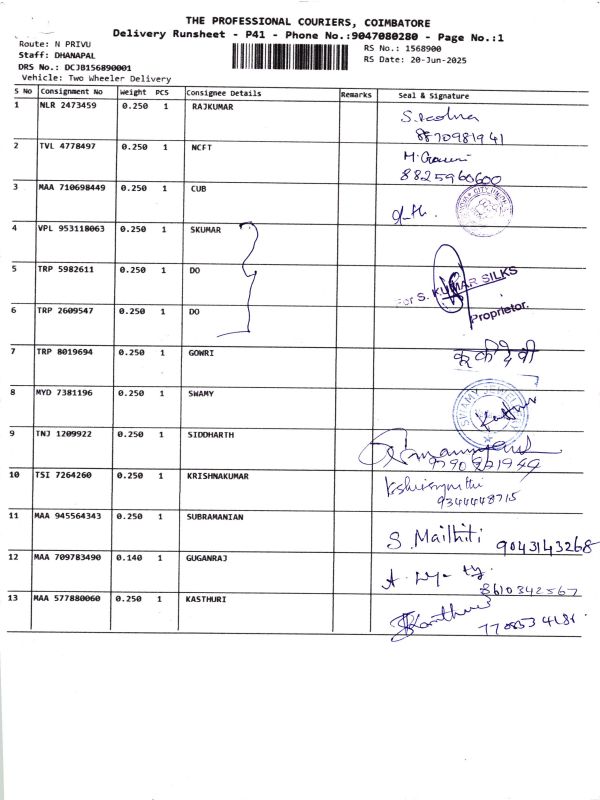 THE PROFESSIONAL COURIERS, COIMBATORE
Delivery Runsheet - P41 - Phone No.:9047080280 - Page No.:1
Route: N PRIVU
RS No.: 1568900
Staff: DHANAPAL
RS Date: 20-Jun-2025
DRS No.: DCJB156890001
Vehicle: Two Wheeler Delivery
S No Consignment No Weight PCS Consignee Details Remarks Seal & Signature
1 NLR 2473459 0.250 1 RAJKUMAR
8870981941
2 TVL 4778497 0.250 1 NCFT M. Gowri
8825960600
3 MAA 710698449 0.250 1 CUB
4 VPL 953118063 0.250 1 SKUMAR
5 TRP 5982611 0.250 1 DO For S. KUMAR SILKS
6 TRP 2609547 0.250 1 DO Proprietor.
7 TRP 8019694 0.250 1 GOWRI
8 MYD 7381196 0.250 1 SWAMY SWAMY JEWELLERY
9 TNJ 1209922 0.250 1 SIDDHARTH
10 TSI 7264260 0.250 1 KRISHNAKUMAR
9344448715
11 MAA 945564343 0.250 1 SUBRAMANIAN S. Mailhiti 9043143268
12 MAA 709783490 0.140 1 GUGANRAJ
8610342567
13 MAA 577880060 0.250 1 KASTHURI